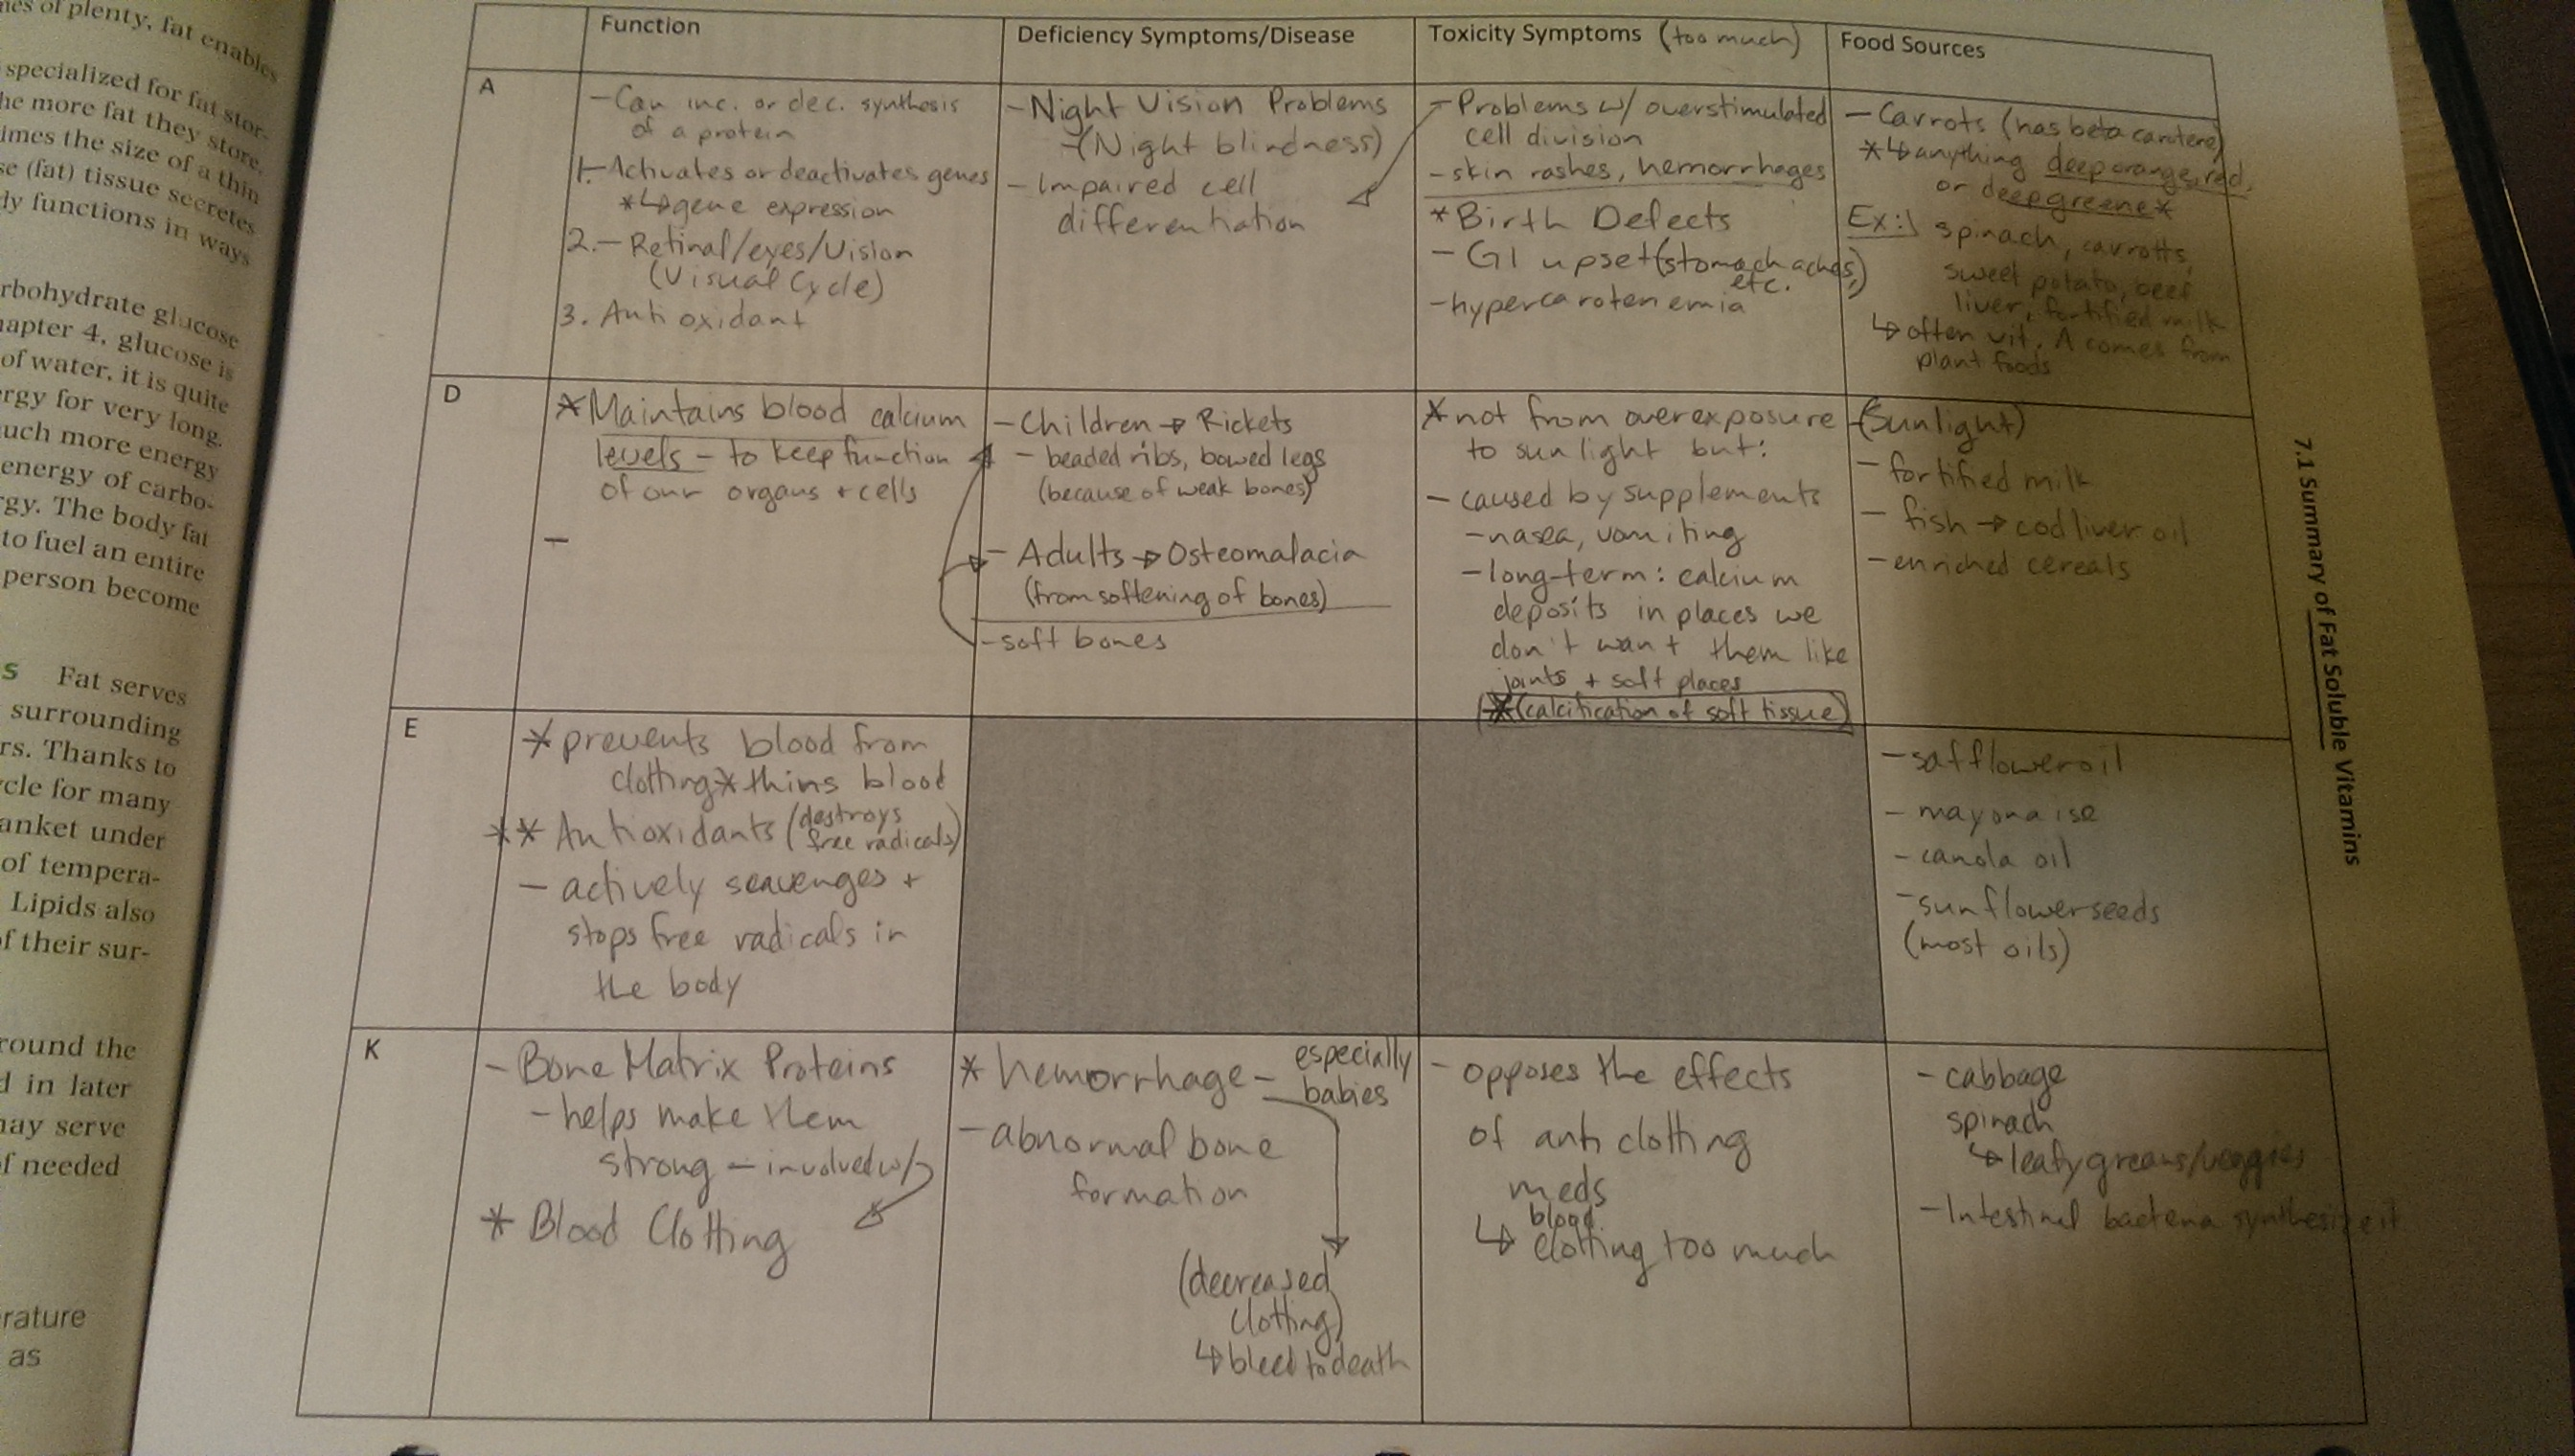 nes of plenty, fat enables
specialized for fat stor-
he more fat they store,
imes the size of a thin
se (fat) tissue secretes
dy functions in ways
rbohydrate glucose
hapter 4, glucose is
of water, it is quite
ergy for very long.
uch more energy
energy of carbo-
rgy. The body fat
to fuel an entire
person become
s Fat serves
surrounding
rs. Thanks to
cle for many
anket under
of tempera-
Lipids also
f their sur-
round the
d in later
nay serve
f needed
rature
as
7.1 Summary of Fat Soluble Vitamins
Function
Deficiency Symptoms/Disease
Toxicity Symptoms (too much)
Food Sources
A
- Can inc. or dec. synthesis
of a protein
1.- Activates or deactivates genes
*↳ gene expression
2.- Retinal/eyes/Vision
(Visual Cycle)
3. Antioxidant
- Night Vision Problems
- (Night blindness)
- Impaired cell
differentiation
- Problems w/ overstimulated
cell division
- skin rashes, hemorrhages
* Birth Defects
- GI upset (stomach aches,
etc.)
- hypercarotenemia
- Carrots (has beta carotene)
*↳ anything deep orange, red,
or deep greene*
Ex:) spinach, carrotts,
sweet potato, beef
liver, fortified milk
↳ often vit. A comes from
plant foods
D
* Maintains blood calcium
levels - to keep function
of our organs + cells
-
- Children → Rickets
- beaded ribs, bowed legs
(because of weak bones)
- Adults → Osteomalacia
(from softening of bones)
- soft bones
* not from overexposure
to sunlight but:
- caused by supplements
- nasea, vomiting
- long-term: calcium
deposits in places we
don't want them like
joints + soft places
* (calcification of soft tissue)
- (Sunlight)
- fortified milk
- fish → cod liver oil
- enriched cereals
E
* prevents blood from
clotting * thins blood
** Antioxidants (destroys
free radicals)
- actively scavenges +
stops free radicals in
the body
- safflower oil
- mayonaise
- canola oil
- sunflower seeds
(most oils)
K
- Bone Matrix Proteins
- helps make them
strong - involved w/
* Blood Clotting
* hemorrhage - especially
babies
- abnormal bone
formation
(decreased
clotting)
↳ bleed to death
- opposes the effects
of anti clotting
meds
↳ blood
clotting too much
- cabbage
spinach
↳ leafy greens/veggies
- Intestinal bacteria synthesize it